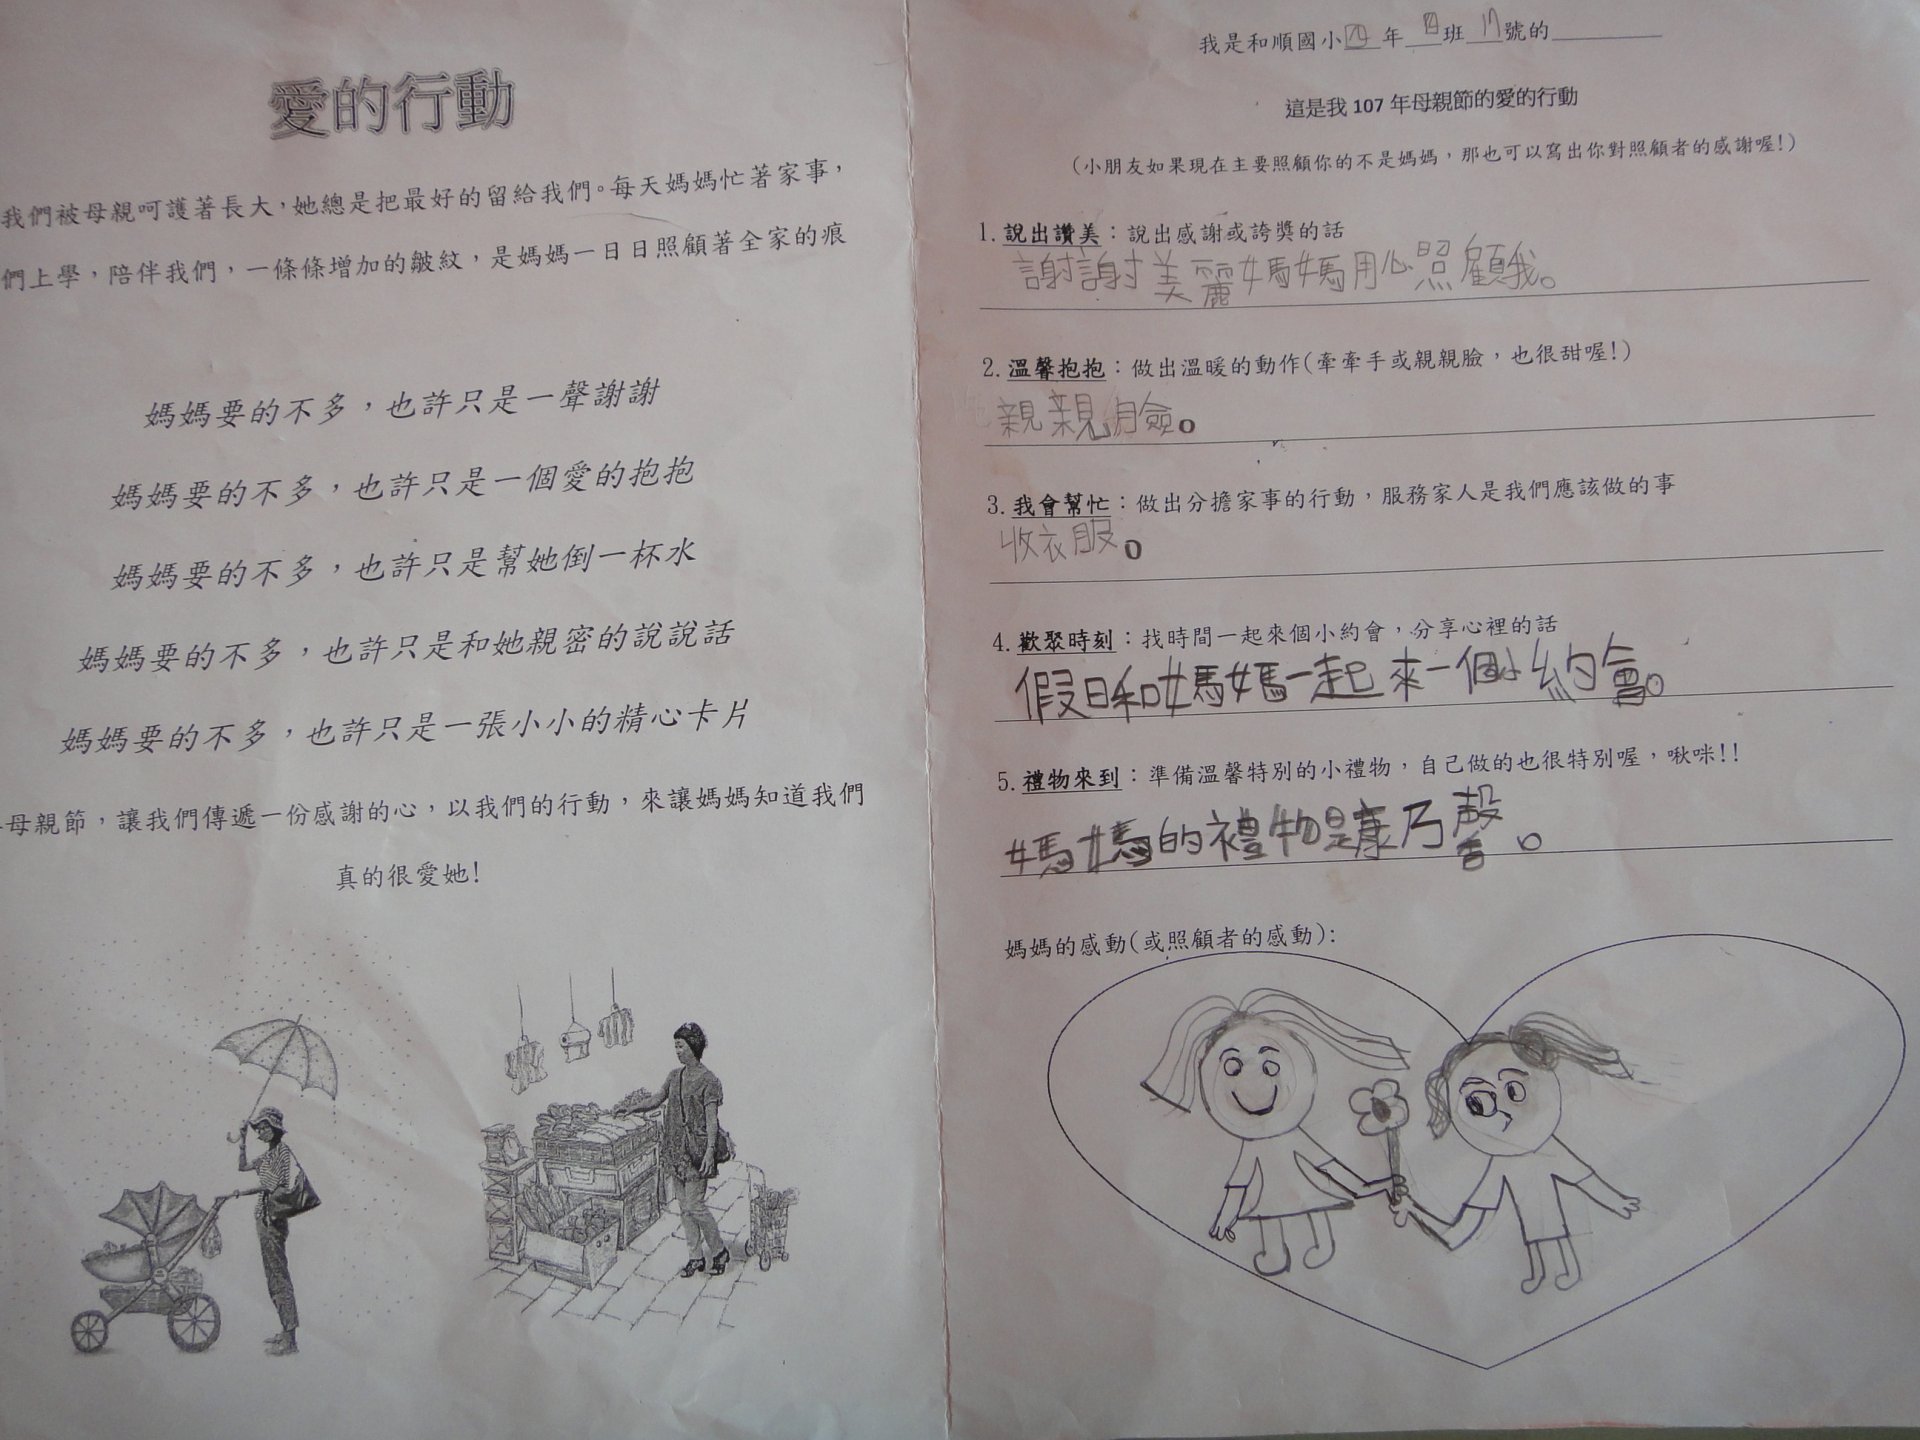 愛的行動
我們被母親呵護著長大，她總是把最好的留給我們。每天媽媽忙著家事，
們上學，陪伴我們，一條條增加的皺紋，是媽媽一日日照顧著全家的痕
媽媽要的不多，也許只是一聲謝謝
媽媽要的不多，也許只是一個愛的抱抱
媽媽要的不多，也許只是幫她倒一杯水
媽媽要的不多，也許只是和她親密的說說話
媽媽要的不多，也許只是一張小小的精心卡片
母親節，讓我們傳遞一份感謝的心，以我們的行動，來讓媽媽知道我們
真的很愛她!
我是和順國小四年四班17號的
這是我107年母親節的愛的行動
(小朋友如果現在主要照顧你的不是媽媽，那也可以寫出你對照顧者的感謝喔!)
1.說出讚美：說出感謝或誇獎的話
謝謝美麗媽媽用心照顧我。
2.溫馨抱抱：做出溫暖的動作(牽牽手或親親臉，也很甜喔!)
親親臉。
3.我會幫忙：做出分擔家事的行動，服務家人是我們應該做的事
收衣服。
4.歡聚時刻：找時間一起來個小約會，分享心裡的話
假日和媽媽一起來一個小約會。
5.禮物來到：準備溫馨特別的小禮物，自己做的也很特別喔，啾咪!!
媽媽的禮物是康乃馨。
媽媽的感動(或照顧者的感動):